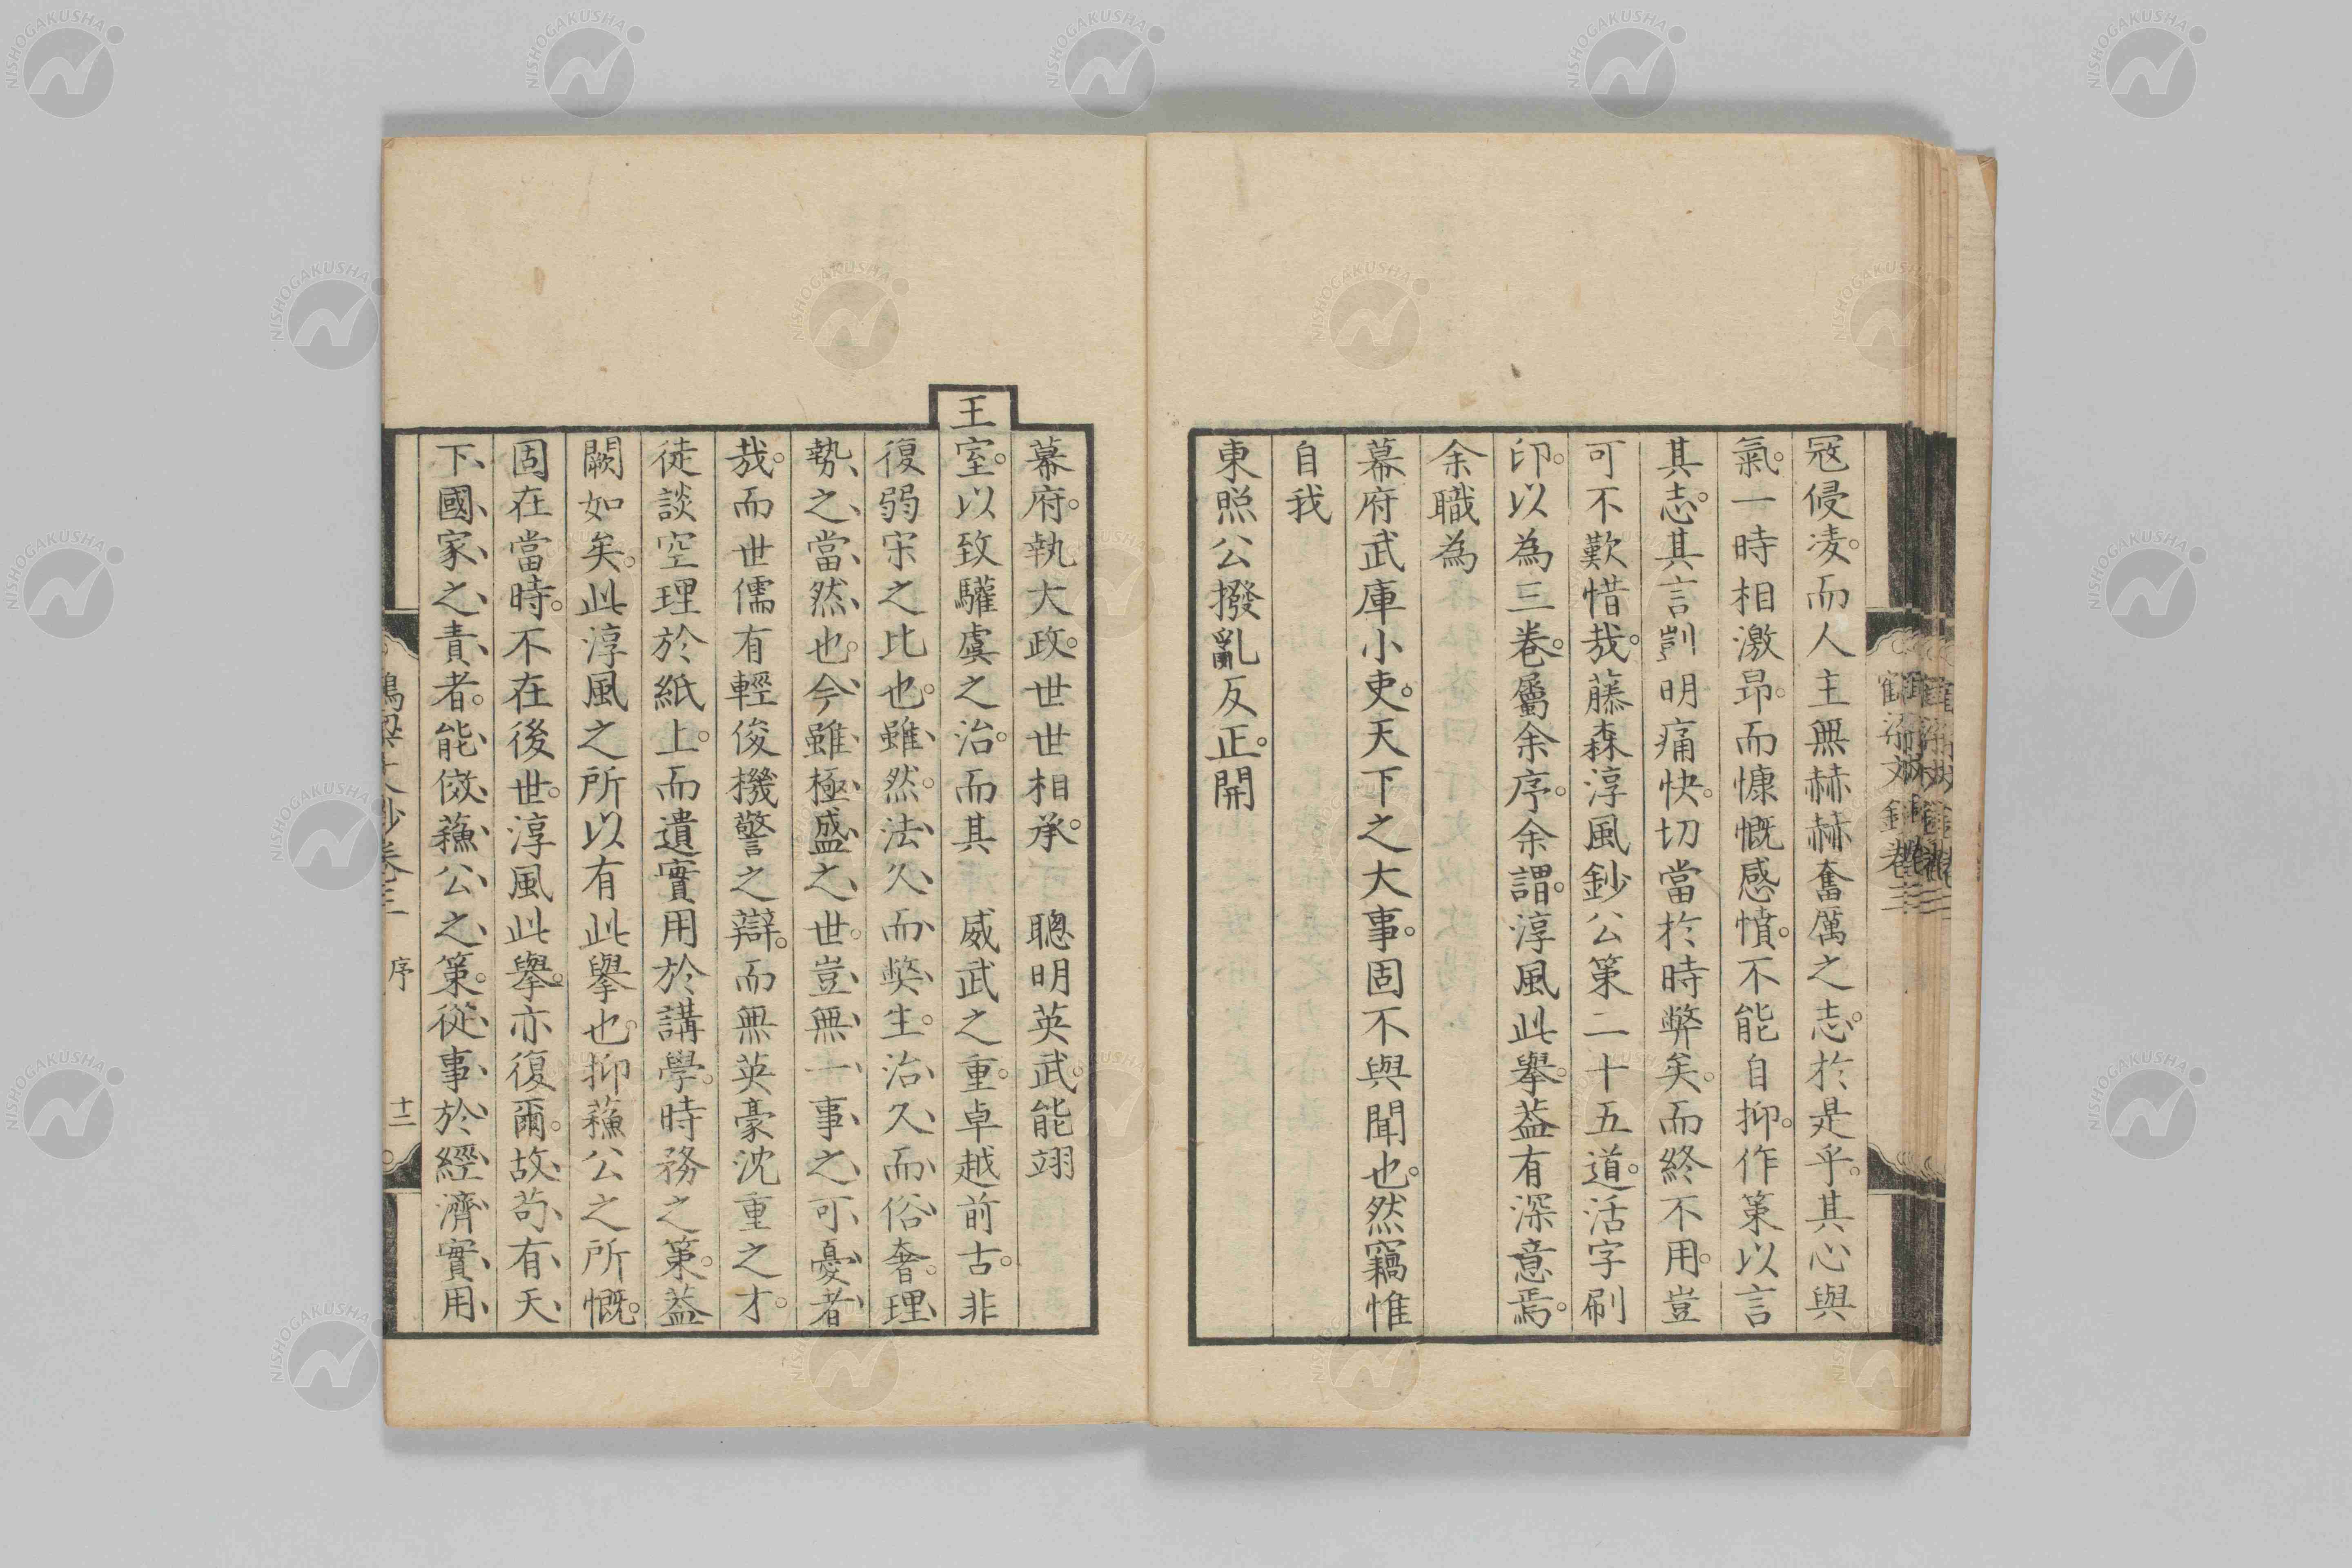 冦侵凌。而人主無赫赫奮厲之志。於是乎。其心與
氣。一時相激昂。而慷慨感憤。不能自抑。作策以言
其志。其言剴明痛快。切當於時弊矣。而終不用。豈
可不歎惜哉。藤森淳風鈔公策二十五道。活字刷
印。以為三卷。屬余序。余謂。淳風此舉。葢有深意焉。
余職為
幕府武庫小吏。天下之大事。固不與聞也。然竊惟
自我
東照公撥亂反正。開
幕府。執大政。世世相承。 聰明英武。能翊
王室。以致驩虞之治。而其 威武之重。卓越前古。非
復弱宋之比也。雖然。法久而弊生。治久而俗奢。理
勢之當然也。今雖極盛之世。豈無一事之可憂者
哉。而世儒有輕俊機警之辯。而無英豪沈重之才。
徒談空理於紙上。而遺實用於講學。時務之策。葢
闕如矣。此淳風之所以有此舉也。抑蘓公之所慨。
固在當時。不在後世。淳風此舉。亦復爾。故苟有天
下國家之責者。能傚蘓公之策。從事於經濟實用
序
十二
NISHOGAKUSHA